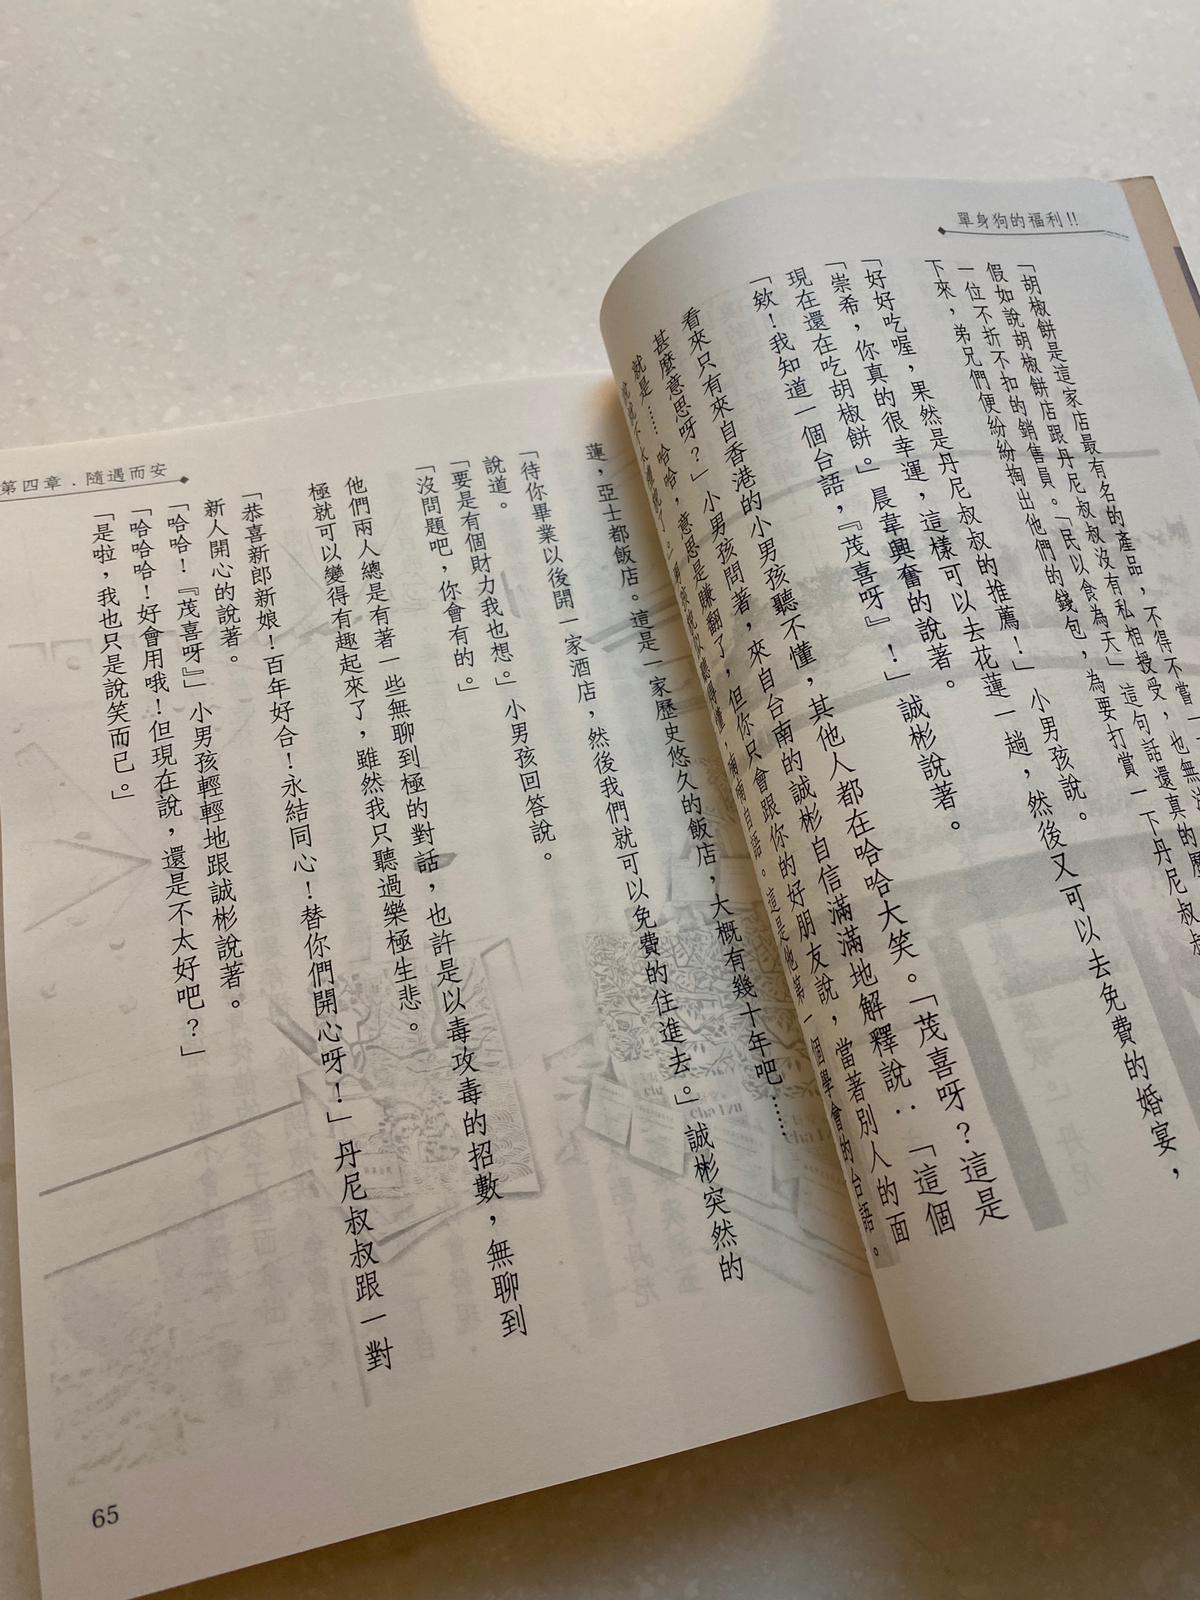 單身狗的福利!!
「胡椒餅是這家店最有名的產品，不得不嘗一
假如說胡椒餅店跟丹尼叔叔沒有私相授受，也無
一位不折不扣的銷售員。「民以食為天」這句話還真的
下來，弟兄們便紛紛掏出他們的錢包，為要打賞一下丹尼叔叔
「好好吃喔，果然是丹尼叔叔的推薦！」小男孩說。
「崇希，你真的很幸運，這樣可以去花蓮一趟，然後又可以去免費的婚宴，
現在還在吃胡椒餅。」晨韋興奮的說著。
「欸！我知道一個台語，『茂喜呀』！」誠彬說著。
看來只有來自香港的小男孩聽不懂，其他人都在哈哈大笑。「茂喜呀？這是
甚麼意思呀？」小男孩問著，來自台南的誠彬自信滿滿地解釋說：「這個
就是……哈哈，意思是賺翻了，但你只會跟你的好朋友說，當著別人的面
說就不太禮貌了。」男孩說似懂得懂，喃喃自語。這是他第一個學會的台語。
蓮，亞士都飯店。這是一家歷史悠久的飯店，大概有幾十年吧……
「待你畢業以後開一家酒店，然後我們就可以免費的住進去。」誠彬突然的
說道。
「要是有個財力我也想。」小男孩回答說。
「沒問題吧，你會有的。」
他們兩人總是有著一些無聊到極的對話，也許是以毒攻毒的招數，無聊到
極就可以變得有趣起來了，雖然我只聽過樂極生悲。
「恭喜新郎新娘！百年好合！永結同心！替你們開心呀！」丹尼叔叔跟一對
新人開心的說著。
「哈哈！『茂喜呀』」小男孩輕輕地跟誠彬說著。
「哈哈哈！好會用哦！但現在說，還是不太好吧？」
「是啦，我也只是說笑而已。」
第四章．隨遇而安
65